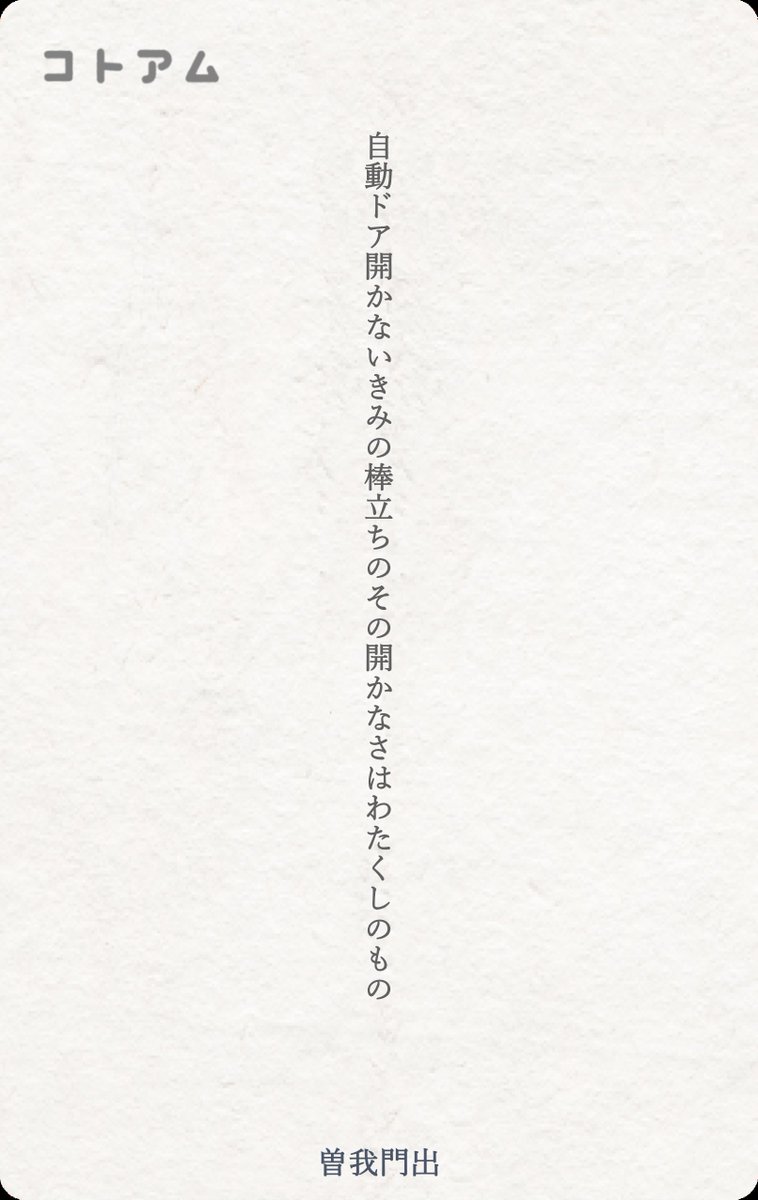 コトアム
自動ドア開かないきみの棒立ちのその開かなさはわたくしのもの
曽我門出